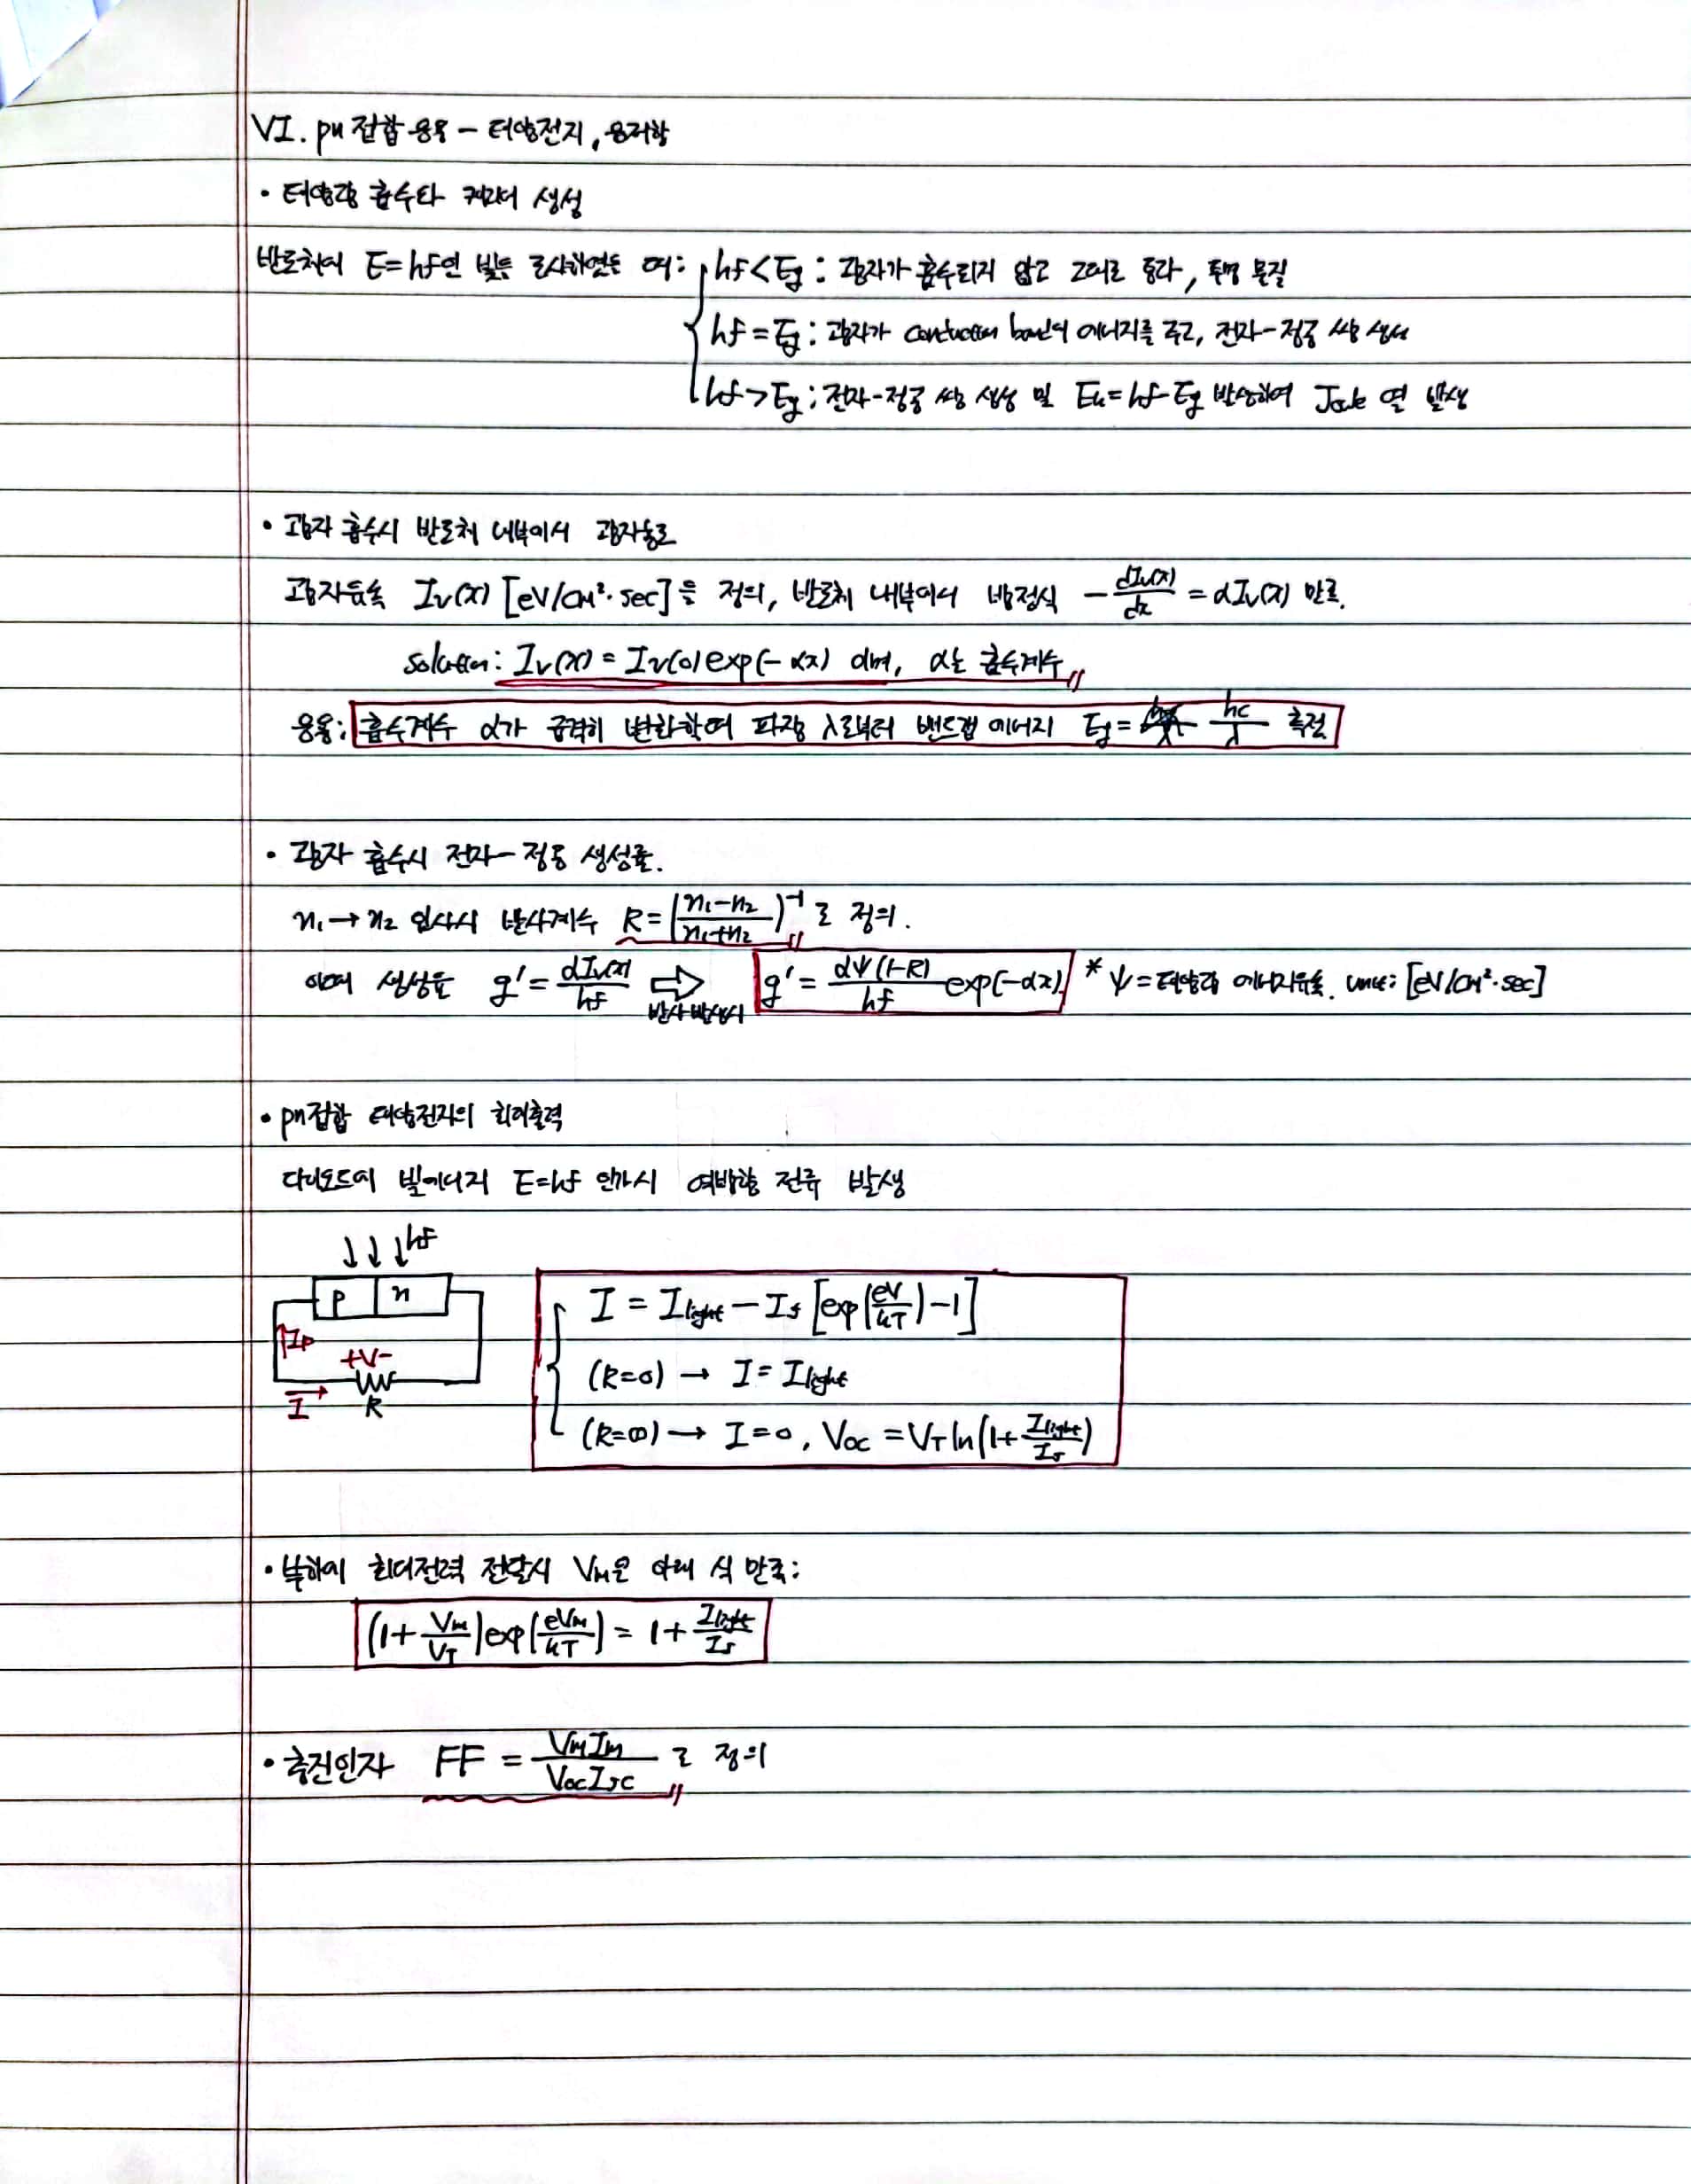 VI. pn 접합 응용 - 태양전지, 광저항
• 태양광 흡수와 캐리어 생성
반도체에 E=hf인 빛을 조사하였을 때: hf<Eg : 광자가 흡수되지 않고 그대로 통과, 투명 물질
hf=Eg : 광자가 conduction band의 에너지를 주고, 전자-정공 쌍 생성
hf>Eg : 전자-정공 쌍 생성 및 Ek=hf-Eg 발생하여 Joule 열 발생
• 광자 흡수시 반도체 내부에서 광자농도
광자유속 Iν(x) [eV/cm²·sec]을 정의, 반도체 내부에서 방정식 -dIν(x)/dx = αIν(x) 만족.
solution: Iν(x) = Iν(0)exp(-αx) 이며, α는 흡수계수
응용: 흡수계수 α가 급격히 변화할때 파장 λ로부터 밴드갭 에너지 Eg = hc/λ 측정
• 광자 흡수시 전자-정공 생성률.
n1→n2 입사시 반사계수 R=((n1-n2)/(n1+n2))^-1 로 정의.
이때 생성율 g'=αIν(x)/hf ⇨ 반사 발생시 g'=αΨ(1-R)/hf exp(-αx) * Ψ=태양광 에너지유속. unit: [eV/cm²·sec]
• pn접합 태양전지의 최대출력
다이오드에 빛에너지 E=hf 인가시 역방향 전류 발생
hf
p n
ID
+V-
I R
I = Ilight - Is [exp(eV/kT)-1]
(R=0) → I = Ilight
(R=∞) → I=0, VOC = VT ln(1+Ilight/Is)
• 부하에 최대전력 전달시 VM은 아래 식 만족:
(1+VM/VT)exp(eVM/kT) = 1+Ilight/Is
• 충진인자 FF = VMIM/VOCISC 로 정의